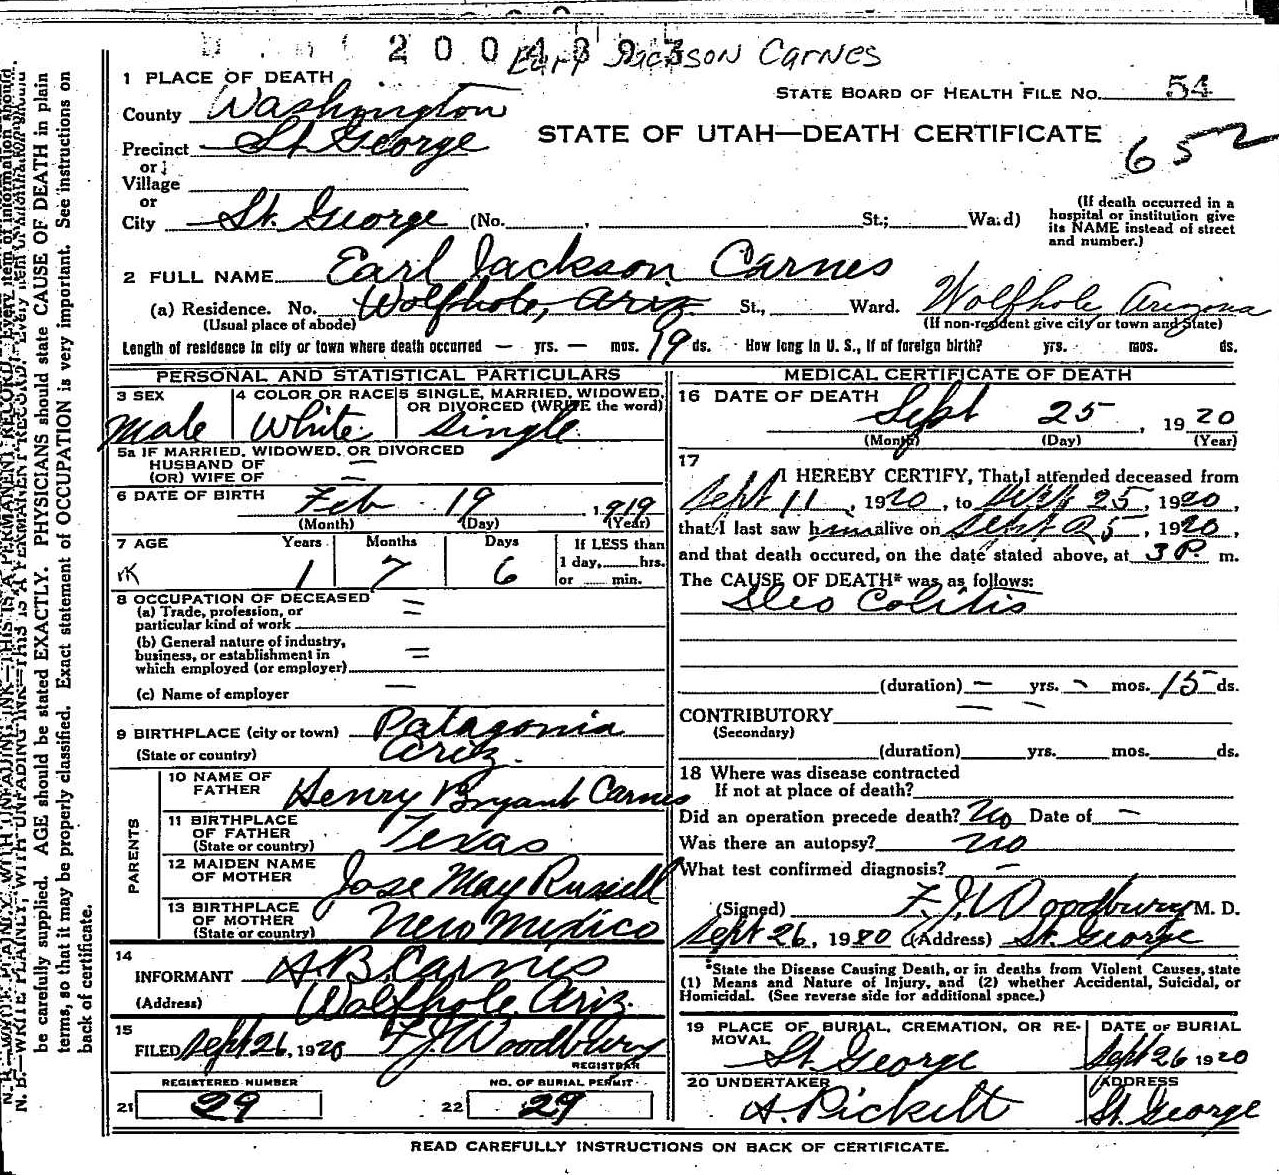 2004893
Earl Jackson Carnes
1 PLACE OF DEATH
STATE BOARD OF HEALTH FILE NO. 54
County Washington
STATE OF UTAH—DEATH CERTIFICATE
652
Precinct St George
or
Village
or
City St. George (No. , St.; Ward)
(If death occurred in a hospital or institution give its NAME instead of street and number.)
2 FULL NAME Earl Jackson Carnes
(a) Residence. No. Wolfhole, Ariz St., Ward. Wolfhole, Arizona
(Usual place of abode) (If non-resident give city or town and State)
Length of residence in city or town where death occurred — yrs. — mos. 19 ds. How long in U. S., if of foreign birth? yrs. mos. ds.
PERSONAL AND STATISTICAL PARTICULARS
3 SEX
Male
4 COLOR OR RACE
White
5 SINGLE, MARRIED, WIDOWED, OR DIVORCED (WRITE the word)
Single
5a IF MARRIED, WIDOWED, OR DIVORCED
HUSBAND OF
(OR) WIFE OF —
6 DATE OF BIRTH Feb 19, 1919
(Month) (Day) (Year)
7 AGE Years Months Days If LESS than
1 7 6 1 day, hrs.
or min.
8 OCCUPATION OF DECEASED
(a) Trade, profession, or
particular kind of work =
(b) General nature of industry,
business, or establishment in
which employed (or employer) =
(c) Name of employer —
9 BIRTHPLACE (city or town) Patagonia
(State or country) Ariz.
PARENTS
10 NAME OF
FATHER Henry Bryant Carnes
11 BIRTHPLACE
OF FATHER
(State or country) Texas
12 MAIDEN NAME
OF MOTHER Jose May Russell
13 BIRTHPLACE
OF MOTHER
(State or country) New Mexico
14
INFORMANT H.B. Carnes
(Address) Wolfhole, Ariz.
15
FILED Sept 26, 1920 F.J. Woodbury
REGISTRAR
REGISTERED NUMBER NO. OF BURIAL PERMIT
21 29 22 29
MEDICAL CERTIFICATE OF DEATH
16 DATE OF DEATH
Sept 25, 1920
(Month) (Day) (Year)
17
I HEREBY CERTIFY, That I attended deceased from
Sept 11, 1920, to Sept 25, 1920,
that I last saw him alive on Sept 25, 1920,
and that death occured, on the date stated above, at 3 P. m.
The CAUSE OF DEATH* was as follows:
Ileo Colitis
(duration) — yrs. — mos. 15 ds.
CONTRIBUTORY — —
(Secondary)
(duration) yrs. mos. ds.
18 Where was disease contracted
If not at place of death?
Did an operation precede death? No Date of —
Was there an autopsy? No
What test confirmed diagnosis? —
(Signed) F.J. Woodbury M. D.
Sept 26, 1920 (Address) St. George
*State the Disease Causing Death, or in deaths from Violent Causes, state
(1) Means and Nature of Injury, and (2) whether Accidental, Suicidal, or
Homicidal. (See reverse side for additional space.)
19 PLACE OF BURIAL, CREMATION, OR REMOVAL
St George
DATE OF BURIAL
Sept 26 1920
20 UNDERTAKER
A. Pickett
ADDRESS
St. George
READ CAREFULLY INSTRUCTIONS ON BACK OF CERTIFICATE.
be carefully supplied. AGE should be stated EXACTLY. PHYSICIANS should state CAUSE OF DEATH in plain
terms, so that it may be properly classified. Exact statement of OCCUPATION is very important. See instructions on
back of certificate.